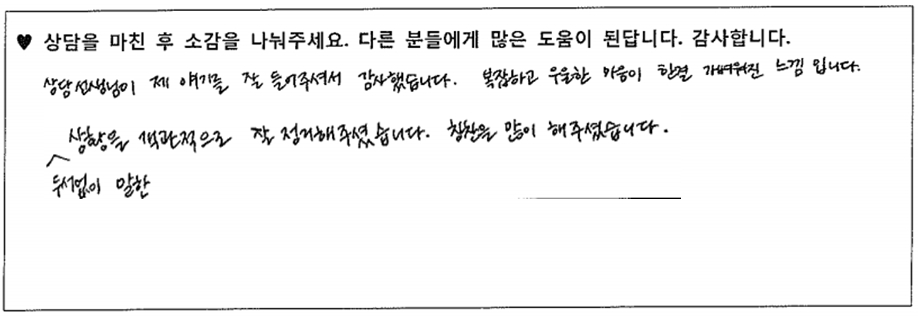 ♥ 상담을 마친 후 소감을 나눠주세요. 다른 분들에게 많은 도움이 된답니다. 감사합니다.
상담선생님이 제 얘기를 잘 들어주셔서 감사했습니다. 복잡하고 우울한 마음이 한결 가벼워진 느낌 입니다.
상황을 객관적으로 잘 정리해주셨습니다. 칭찬을 많이 해주셨습니다.
두서없이 말한